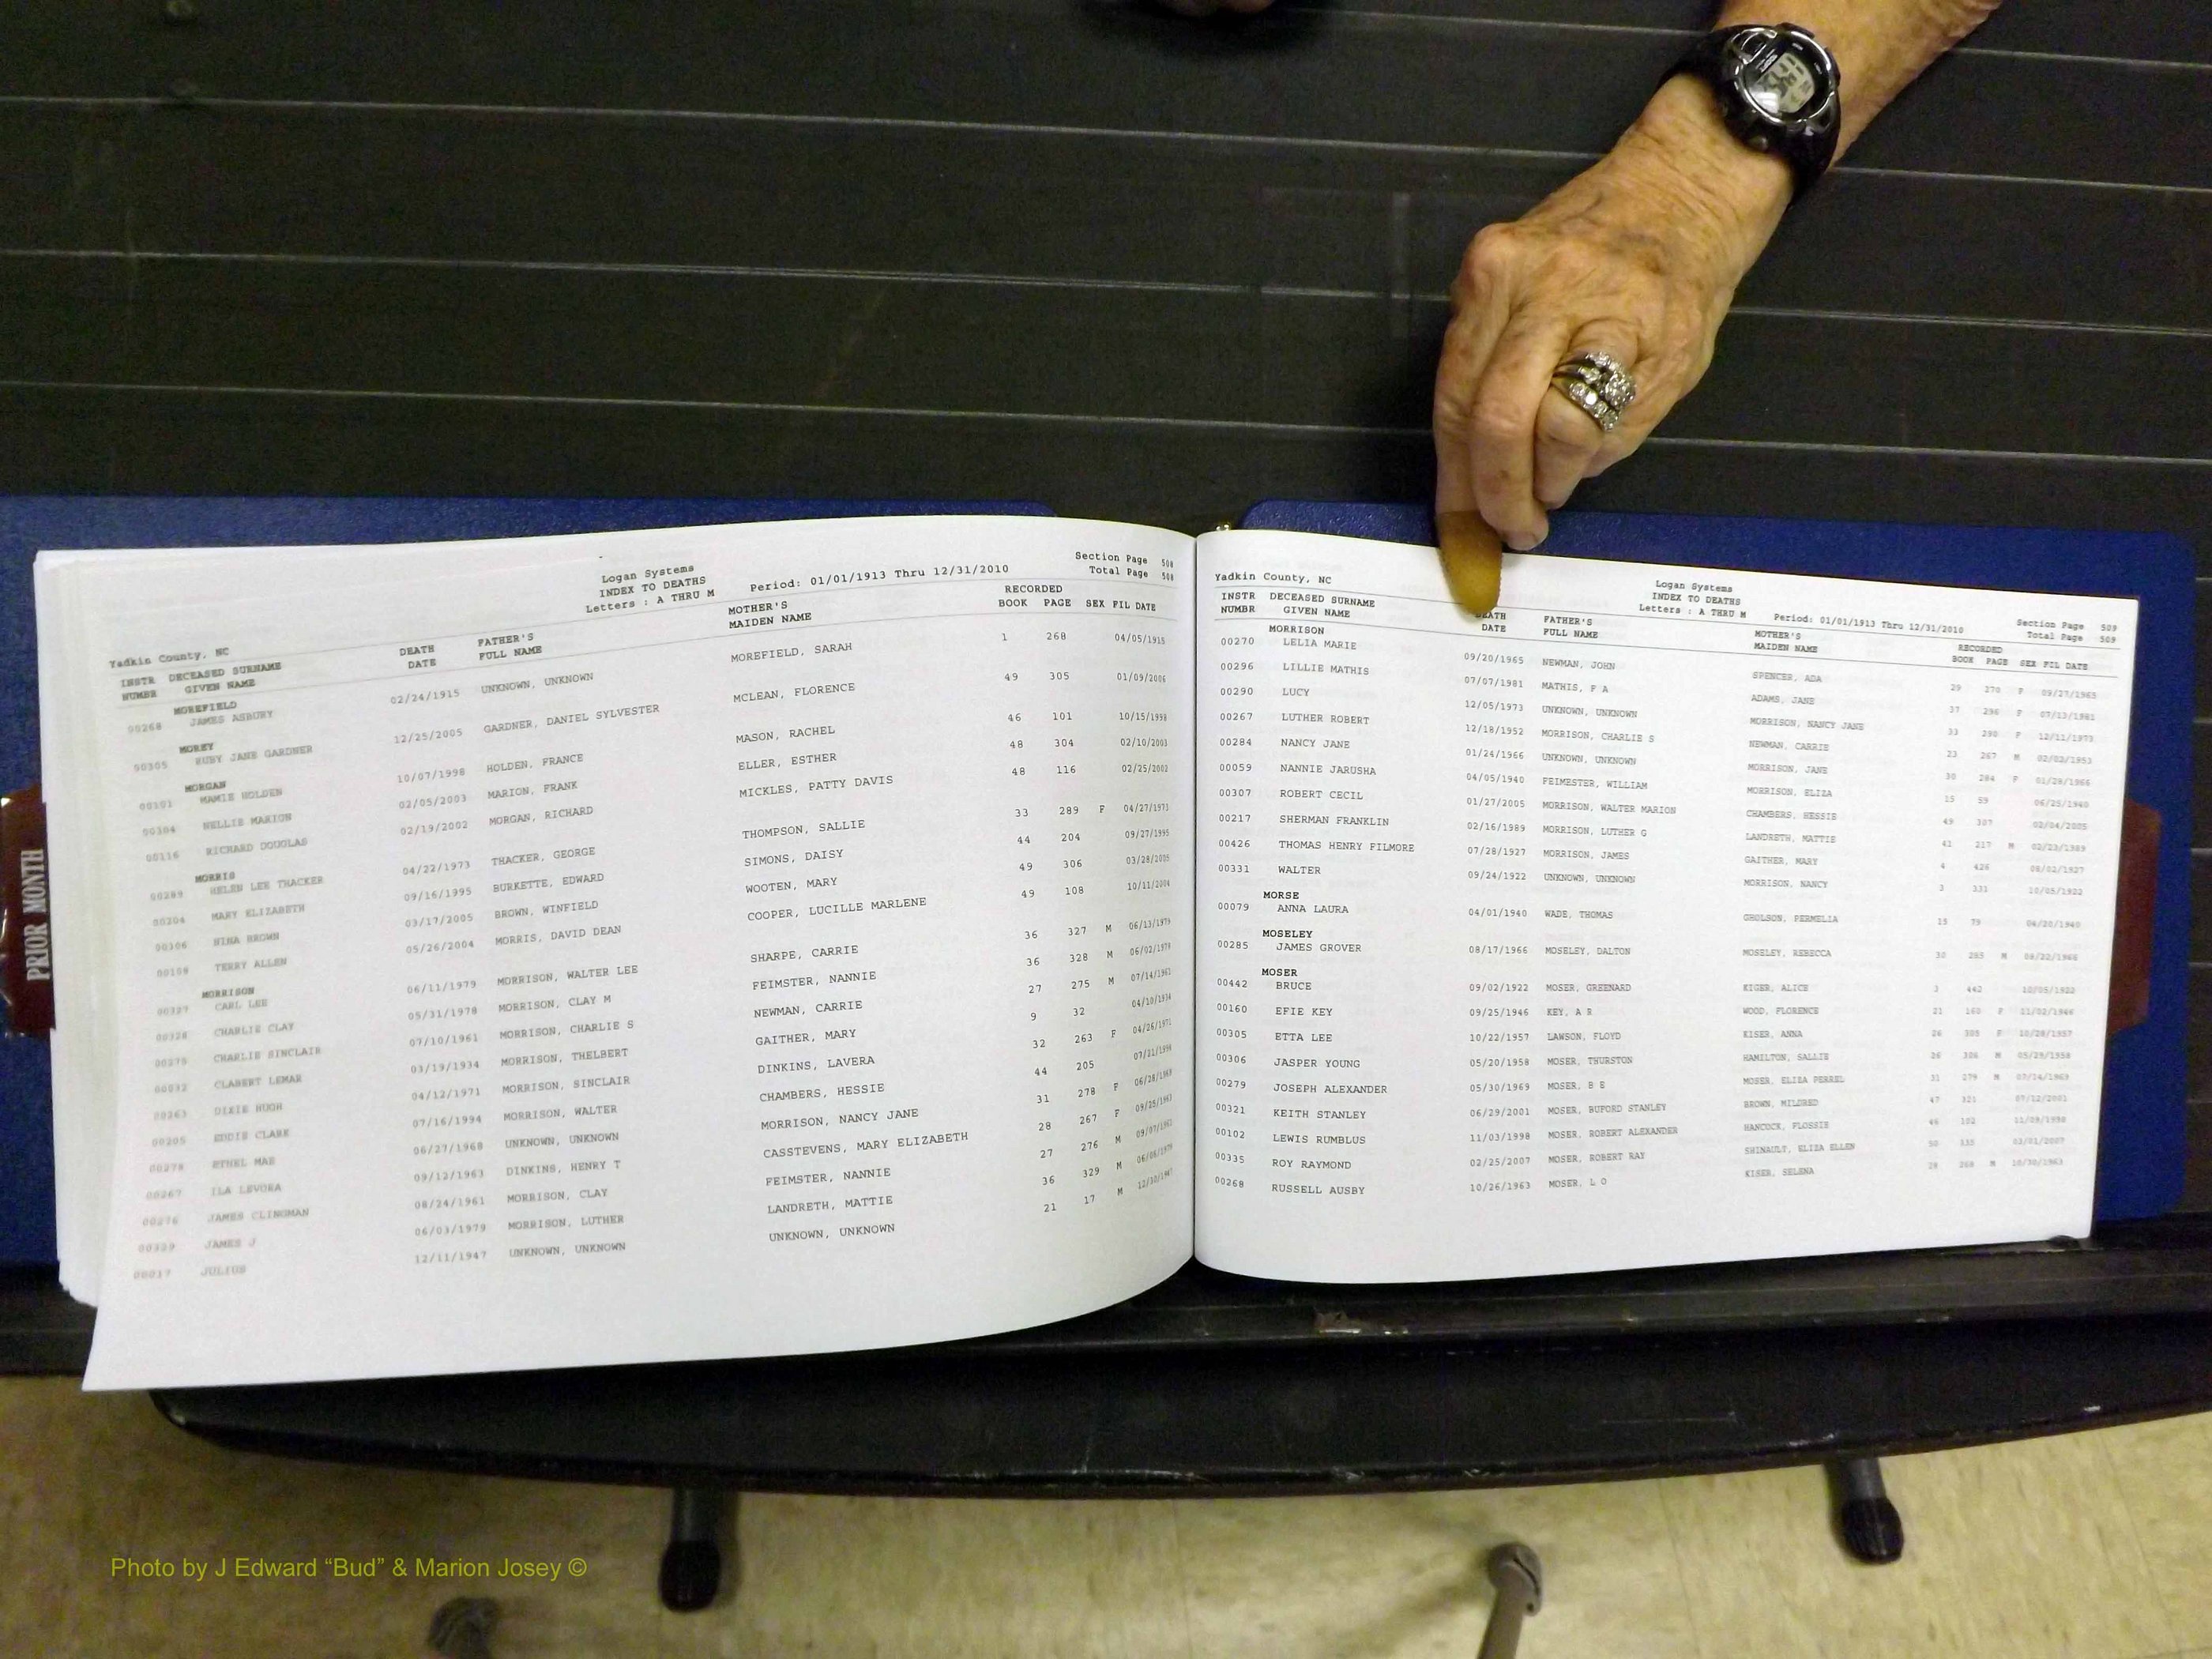 Logan Systems
INDEX TO DEATHS
Letters : A THRU M
Period: 01/01/1913 Thru 12/31/2010
Section Page 508
Total Page 508
Yadkin County, NC
INSTR DECEASED SURNAME DEATH FATHER'S MOTHER'S RECORDED
NUMBR GIVEN NAME DATE FULL NAME MAIDEN NAME BOOK PAGE SEX FIL DATE
MOREFIELD
00268 JAMES ASBURY 02/24/1915 UNKNOWN, UNKNOWN MOREFIELD, SARAH 1 268 04/05/1915
MOREY
00305 RUBY JANE GARDNER 12/25/2005 GARDNER, DANIEL SYLVESTER MCLEAN, FLORENCE 49 305 01/09/2006
MORGAN
00101 MAMIE HOLDEN 10/07/1998 HOLDEN, FRANCE MASON, RACHEL 46 101 10/15/1998
00304 NELLIE MARION 02/05/2003 MARION, FRANK ELLER, ESTHER 48 304 02/10/2003
00116 RICHARD DOUGLAS 02/19/2002 MORGAN, RICHARD MICKLES, PATTY DAVIS 48 116 02/25/2002
MORRIS
00289 HELEN LEE THACKER 04/22/1973 THACKER, GEORGE THOMPSON, SALLIE 33 289 F 04/27/1973
00204 MARY ELIZABETH 09/16/1995 BURKETTE, EDWARD SIMONS, DAISY 44 204 09/27/1995
00306 NINA BROWN 03/17/2005 BROWN, WINFIELD WOOTEN, MARY 49 306 03/28/2005
00108 TERRY ALLEN 05/26/2004 MORRIS, DAVID DEAN COOPER, LUCILLE MARLENE 49 108 10/11/2004
MORRISON
00327 CARL LEE 06/11/1979 MORRISON, WALTER LEE SHARPE, CARRIE 36 327 M 06/13/1979
00328 CHARLIE CLAY 05/31/1978 MORRISON, CLAY M FEIMSTER, NANNIE 36 328 M 06/02/1978
00275 CHARLIE SINCLAIR 07/10/1961 MORRISON, CHARLIE S NEWMAN, CARRIE 27 275 M 07/14/1961
00032 CLABERT LEMAR 03/19/1934 MORRISON, THELBERT GAITHER, MARY 9 32 04/10/1934
00263 DIXIE HUGH 04/12/1971 MORRISON, SINCLAIR DINKINS, LAVERA 32 263 F 04/26/1971
00205 EDDIE CLARK 07/16/1994 MORRISON, WALTER CHAMBERS, HESSIE 44 205 07/21/1994
00278 ETHEL MAE 06/27/1968 UNKNOWN, UNKNOWN MORRISON, NANCY JANE 31 278 F 06/28/1968
00267 ILA LEVORA 09/12/1963 DINKINS, HENRY T CASSTEVENS, MARY ELIZABETH 28 267 F 09/25/1963
00276 JAMES CLINGMAN 08/24/1961 MORRISON, CLAY FEIMSTER, NANNIE 27 276 M 09/07/1961
00329 JAMES J 06/03/1979 MORRISON, LUTHER LANDRETH, MATTIE 36 329 M 06/06/1979
00017 JULIUS 12/11/1947 UNKNOWN, UNKNOWN UNKNOWN, UNKNOWN 21 17 M 12/30/1947
PRIOR MONTH
Yadkin County, NC
Logan Systems
INDEX TO DEATHS
Letters : A THRU M
Period: 01/01/1913 Thru 12/31/2010
Section Page 509
Total Page 509
INSTR DECEASED SURNAME DEATH FATHER'S MOTHER'S RECORDED
NUMBR GIVEN NAME DATE FULL NAME MAIDEN NAME BOOK PAGE SEX FIL DATE
MORRISON
00270 LELIA MARIE 09/20/1965 NEWMAN, JOHN SPENCER, ADA 29 270 F 09/27/1965
00296 LILLIE MATHIS 07/07/1981 MATHIS, F A ADAMS, JANE 37 296 F 07/13/1981
00290 LUCY 12/05/1973 UNKNOWN, UNKNOWN MORRISON, NANCY JANE 33 290 F 12/11/1973
00267 LUTHER ROBERT 12/18/1952 MORRISON, CHARLIE S NEWMAN, CARRIE 23 267 M 02/02/1953
00284 NANCY JANE 01/24/1966 UNKNOWN, UNKNOWN MORRISON, JANE 30 284 F 01/28/1966
00059 NANNIE JARUSHA 04/05/1940 FEIMESTER, WILLIAM MORRISON, ELIZA 15 59 06/25/1940
00307 ROBERT CECIL 01/27/2005 MORRISON, WALTER MARION CHAMBERS, HESSIE 49 307 02/04/2005
00217 SHERMAN FRANKLIN 02/16/1989 MORRISON, LUTHER G LANDRETH, MATTIE 41 217 M 02/23/1989
00426 THOMAS HENRY FILMORE 07/28/1927 MORRISON, JAMES GAITHER, MARY 4 426 08/02/1927
00331 WALTER 09/24/1922 UNKNOWN, UNKNOWN MORRISON, NANCY 3 331 10/05/1922
MORSE
00079 ANNA LAURA 04/01/1940 WADE, THOMAS GHOLSON, PERMELIA 15 79 04/20/1940
MOSELEY
00285 JAMES GROVER 08/17/1966 MOSELEY, DALTON MOSELEY, REBECCA 30 285 M 08/22/1966
MOSER
00442 BRUCE 09/02/1922 MOSER, GREENARD KIGER, ALICE 3 442 10/05/1922
00160 EFIE KEY 09/25/1946 KEY, A R WOOD, FLORENCE 21 160 F 11/02/1946
00305 ETTA LEE 10/22/1957 LAWSON, FLOYD KISER, ANNA 26 305 F 10/28/1957
00306 JASPER YOUNG 05/20/1958 MOSER, THURSTON HAMILTON, SALLIE 26 306 M 05/29/1958
00279 JOSEPH ALEXANDER 05/30/1969 MOSER, B E MOSER, ELIZA PERREL 31 279 M 07/14/1969
00321 KEITH STANLEY 06/29/2001 MOSER, BUFORD STANLEY BROWN, MILDRED 47 321 07/12/2001
00102 LEWIS RUMBLUS 11/03/1998 MOSER, ROBERT ALEXANDER HANCOCK, FLOSSIE 46 102 11/09/1998
00335 ROY RAYMOND 02/25/2007 MOSER, ROBERT RAY SHINAULT, ELIZA ELLEN 50 335 02/01/2007
00268 RUSSELL AUSBY 10/26/1963 MOSER, L O KISER, SELENA 28 268 M 10/30/1963
Photo by J Edward “Bud” & Marion Josey ©